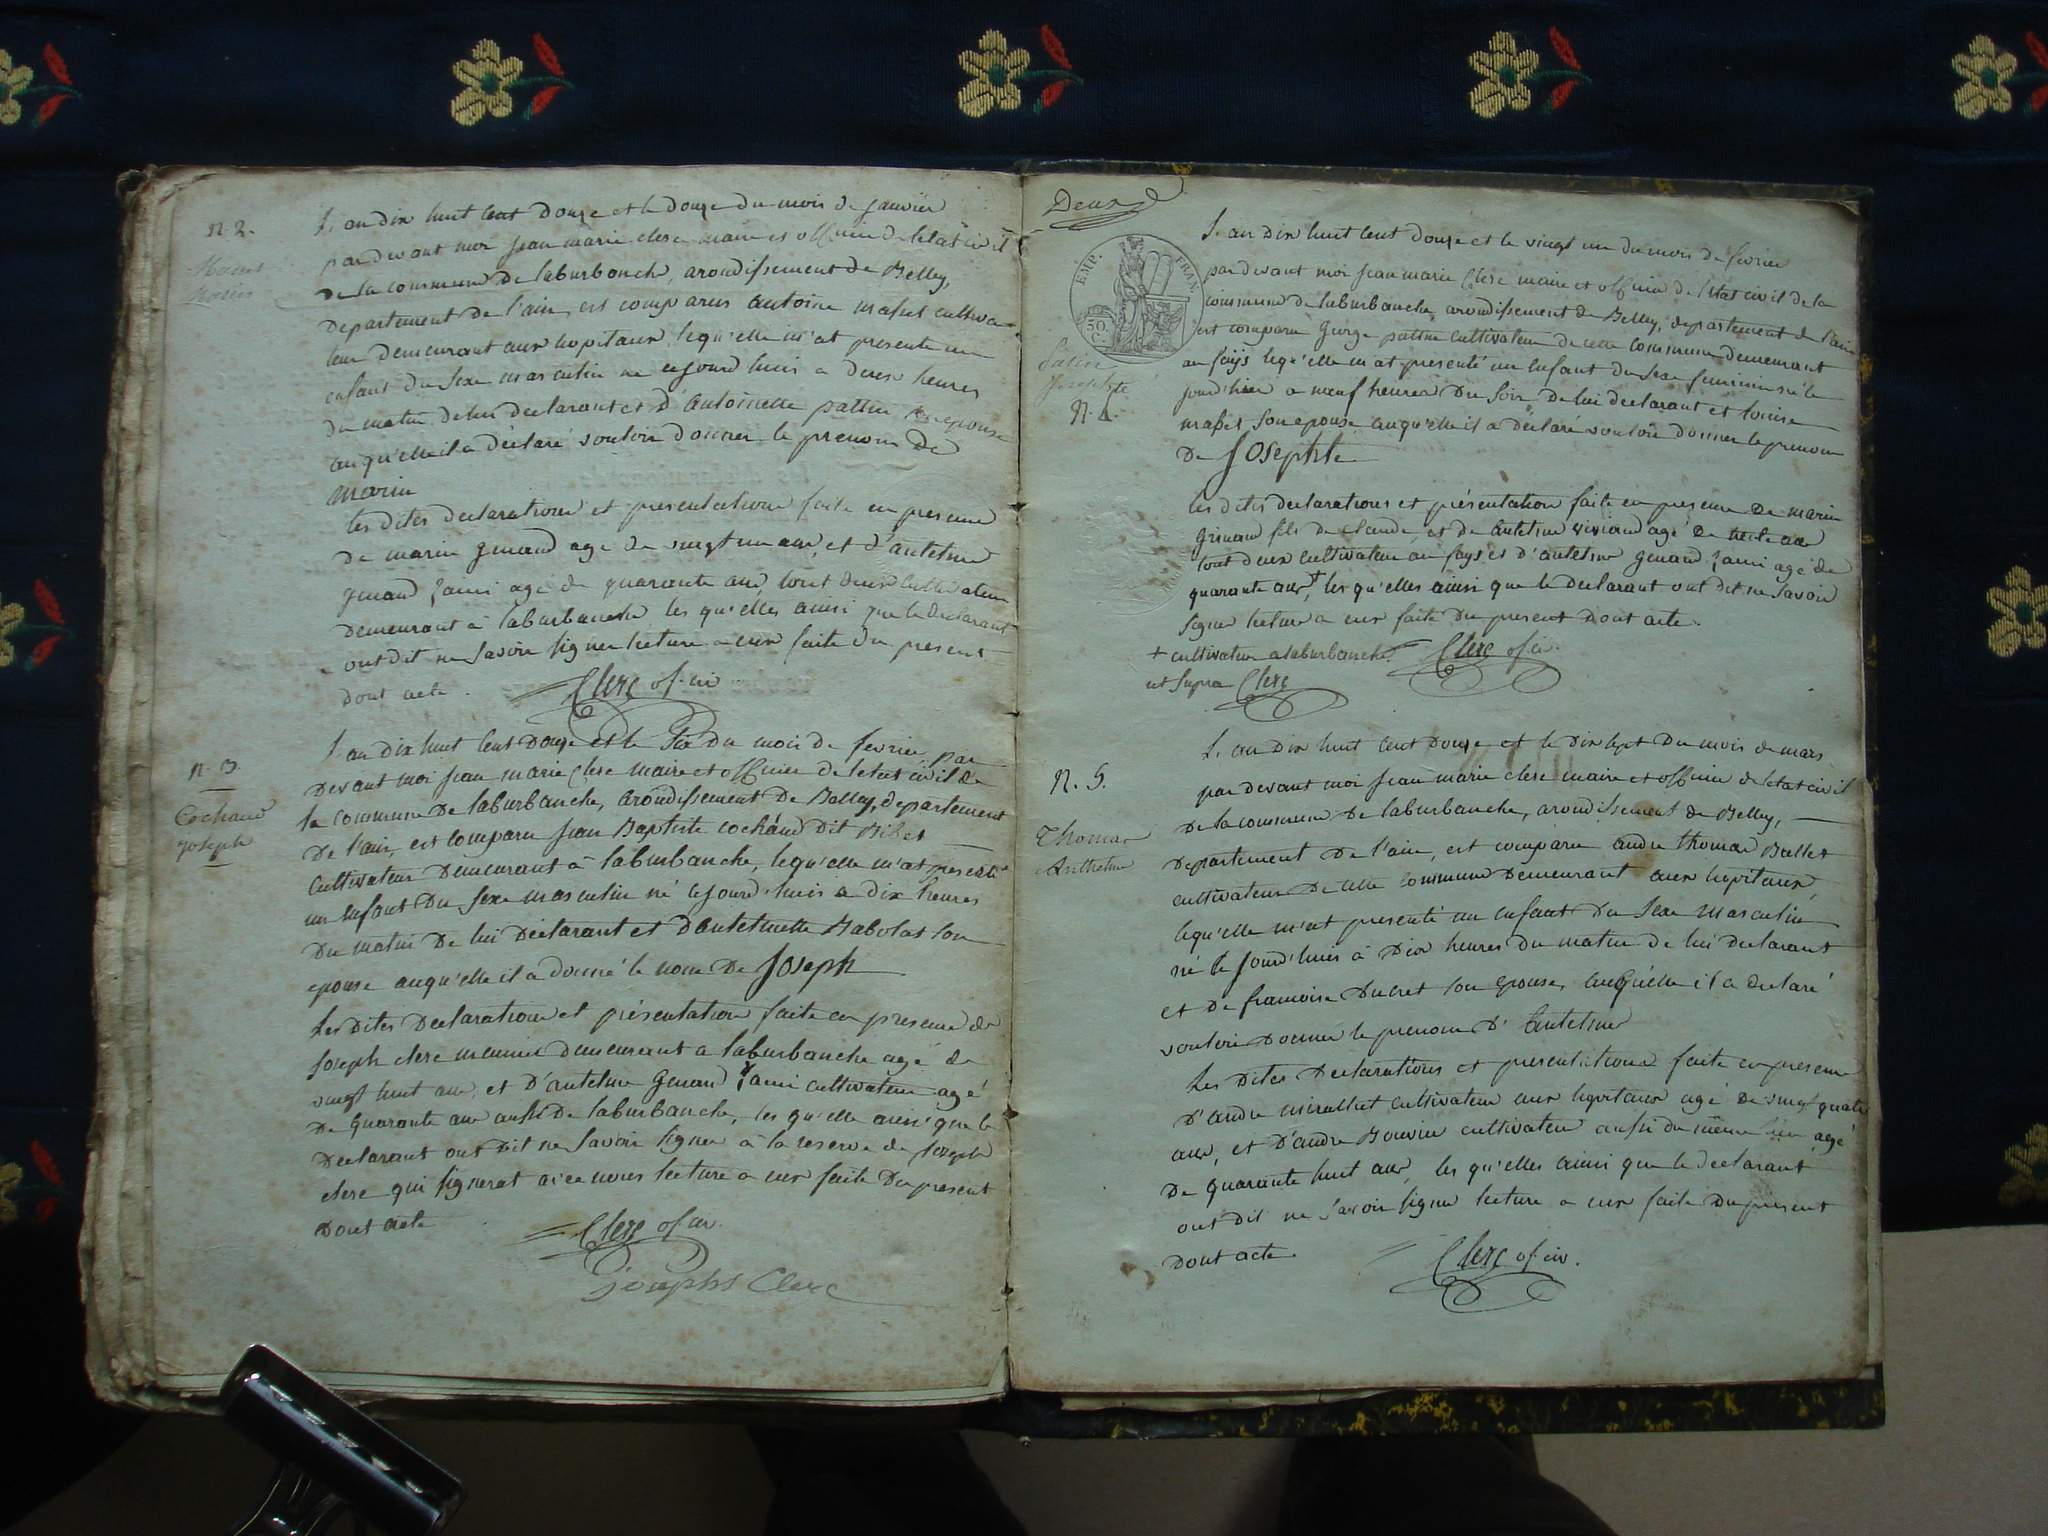 N. 2.
Masset
Marin
L'an dix huit cent douze et le douze du mois de janvier
par devant moi jean marie clerc maire et officier de letat civil
de la commune de laburbanche, arondissement de Belley,
departement de l'ain, est comparus antoine masset cultiva-
teur demeurant aux hopitaux lequ'elle m'at presenté un
enfant du sexe masculin né cejourd'huis a deux heures
du matin de lui declarant et d'antoinette pattin son epouse
auqu'elle il a déclaré vouloir donner le prenom de
marin
les dites declarations et presentation faite en presence
de marin genand agé de vingt un ans, et d'antelme
genand agé de quarante ans, tout deux cultivateur
demeurant à laburbanche les qu'elles ainsi que le declarant
ont dit ne savoir signer lecture a eux faite du present
dont acte.
Clerc of. civ.
N. 3.
Cochand
joseph
L'an dix huit cent douze et le Six du mois de fevrier par
devant moi jean marie Clerc maire et officier de letat civil de
la commune de laburbanche, arondissement de Belley, departement
de l'ain, est comparu jean Baptiste cochand dit Bibet
cultivateur demeurant à laburbanche, lequ'elle m'at presenté
un enfant du sexe masculin né cejourd'huis a dix heures
du matin de lui declarant et d'antelmette Babolat son
epouse auqu'elle il a donné le nom de Joseph
Les dites declarations et présentation faite en presence de
joseph clerc meunier demeurant a laburbanche agé de
vingt huit ans, et d'antelme genand cultivateur agé
de quarante ans aussi de laburbanche, les qu'elle ainsi que le
declarant ont dit ne savoir signer à la reserve de joseph
clerc qui signerat avec nous lecture a eux faite du present
dont acte
Clerc of civ.
josephs Clerc
Deux
EMP. FRAN.
50.
C.
Patin
Josephte
N. 4.
L'an dix huit cent douze et le vingt un du mois de fevrier
par devant moi jean marie Clerc maire et officier de letat civil de la
commune de laburbanche, arondissement de Belley, departement de l'ain
est comparu george pattin cultivateur de cette commune demeurant
au fays lequ'elle m'at presenté un enfant du sexe feminin né le
jourd'hier a neuf heures du soir de lui declarant et louise
masset son epouse auqu'elle il a declaré vouloir donner le prenom
de Josephte
les dites declarations et présentation faite en presence de marin
fils de claude, et de antelme viviand agé de trente ans
tout deux cultivateur au fays et d'antelme genand agé de
quarante ans,+ les qu'elles ainsi que le declarant ont dit ne savoir
signer lecture a eux faite du present dont acte.
+ cultivateur a laburbanche. Clerc of civ.
ut supra Clerc
N. 5.
Thomas
Anthelme
L'an dix huit cent douze et le dix sept du mois de mars
par devant moi jean marie clerc maire et officier de letat civil
de la commune de laburbanche, arondissement de Belley,
departement de l'ain, est comparu andré thomas Ballet
cultivateur de cette commune demeurant aux hopitaux
lequ'elle m'at presenté un enfant du sexe masculin
né le jourd'huis à dix heures du matin de lui declarant
et de francoise Ducret son epouse, auqu'elle il a declaré
vouloir donner le prenom d'antelme
Les dites declarations et presentation faite en presence
d'andré cultivateur aux hopitaux agé de vingt quatre
ans, et d'andré Bouvier cultivateur aussi du même lieu agé
de quarante huit ans, les qu'elles ainsi que le declarant
ont dit ne savoir signer lecture a eux faite du present
dont acte.
Clerc of. civ.